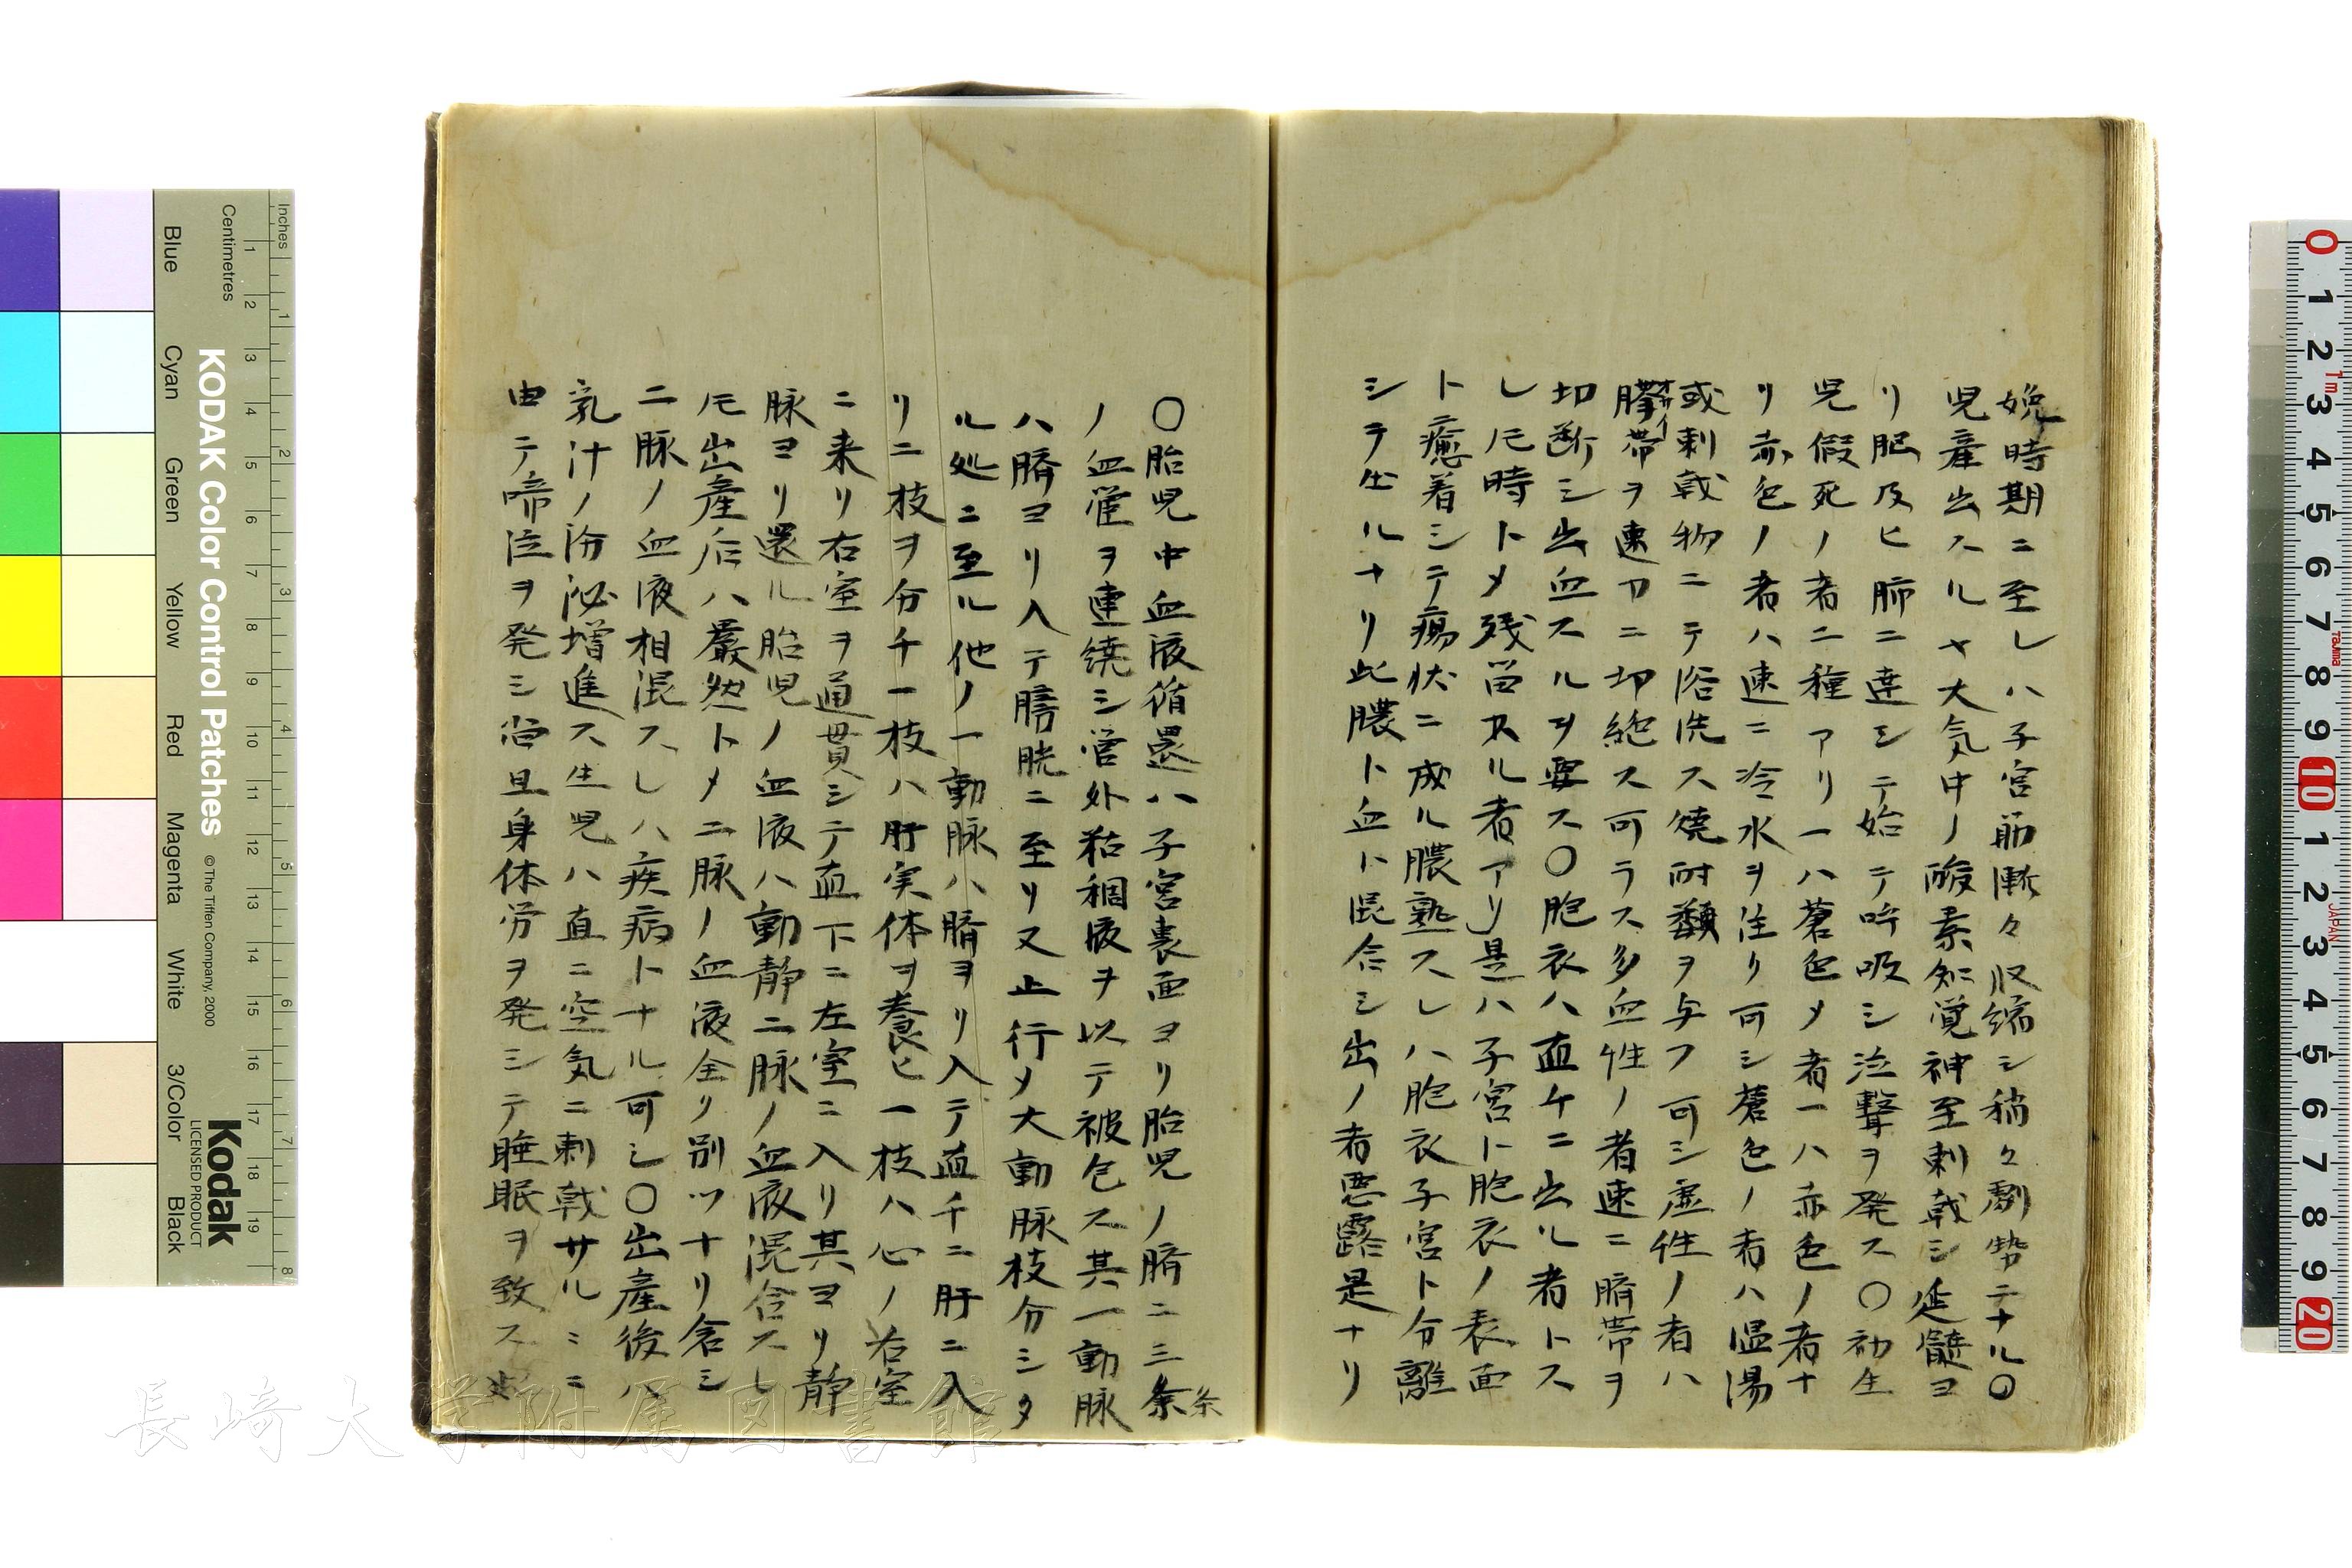 娩時期ニ至レハ子宮筋漸々収縮シ稍々劇勢ニナル〇
児産出スルヤ大気中ノ酸素知覚神至刺戟シ延髄ヨ
リ肥及ヒ肺ニ達シテ始テ呼吸シ泣聲ヲ発ス〇初生
児假死ノ者二種アリ一ハ蒼色メ者一ハ赤色ノ者ナ
リ赤色ノ者ハ速ニ冷水ヲ注リ可シ蒼色ノ者ハ温湯
或刺戟物ニテ浴洗ス焼酎類ヲ与フ可シ虚性ノ者ハ
臍帯ヲ速カニ切絶ス可ラス多血性ノ者速ニ臍帯ヲ
切断シ出血スルヲ要ス〇胞衣ハ直ケニ出ル者トス
レ𪜈時トメ残留スル者アリ是ハ子宮ト胞衣ノ表面
ト癒着シテ瘍状ニ成ル膿熟スレハ胞衣子宮ト分離
シテ出ルナリ此膿ト血ト混合シ出ノ者悪露是ナリ
〇胎児中血液循還ハ子宮裏面ヨリ胎児ノ臍ニ三条
条
ノ血管ヲ連繞シ管外粘稠液ヲ以テ被包ス其一動脉
ハ臍ヨリ入テ膀胱ニ至リ又上行メ大動脉枝分シタ
ル処ニ至ル他ノ一動脉ハ臍ヨリ入テ直チニ肝ニ入
リ二枝ヲ分チ一枝ハ肝実体ヲ養ヒ一枝ハ心ノ右室
ニ来リ右室ヲ通貫シテ直下ニ左室ニ入リ其ヨリ静
脉ヨリ還ル胎児ノ血液ハ動静二脉ノ血液混合スレ
𪜈出産后ハ嚴然トメ二脉ノ血液全リ別ツナリ若シ
二脉ノ血液相混スレハ疾病トナル可シ〇出産後ハ
乳汁ノ汾泌増進ス生児ハ直ニ空気ニ刺戟サルニニ
由テ啼泣ヲ発シ当且身体労ヲ発シテ睡眠ヲ致ス
Inches
Centimetres
KODAK Color Control Patches
© The Tiffen Company, 2000
Kodak
LICENSED PRODUCT
Blue
Cyan
Green
Yellow
Red
Magenta
White
3/Color
Black
1 2 3 4 5 6 7 8 9 10 11 12 13 14 15 16 17 18 19
1 2 3 4 5 6 7 8
0 1 2 3 4 5 6 7 8 9 10 1 2 3 4 5 6 7 8 9 20
1m
Tajima
JAPAN
長崎大学附属図書館